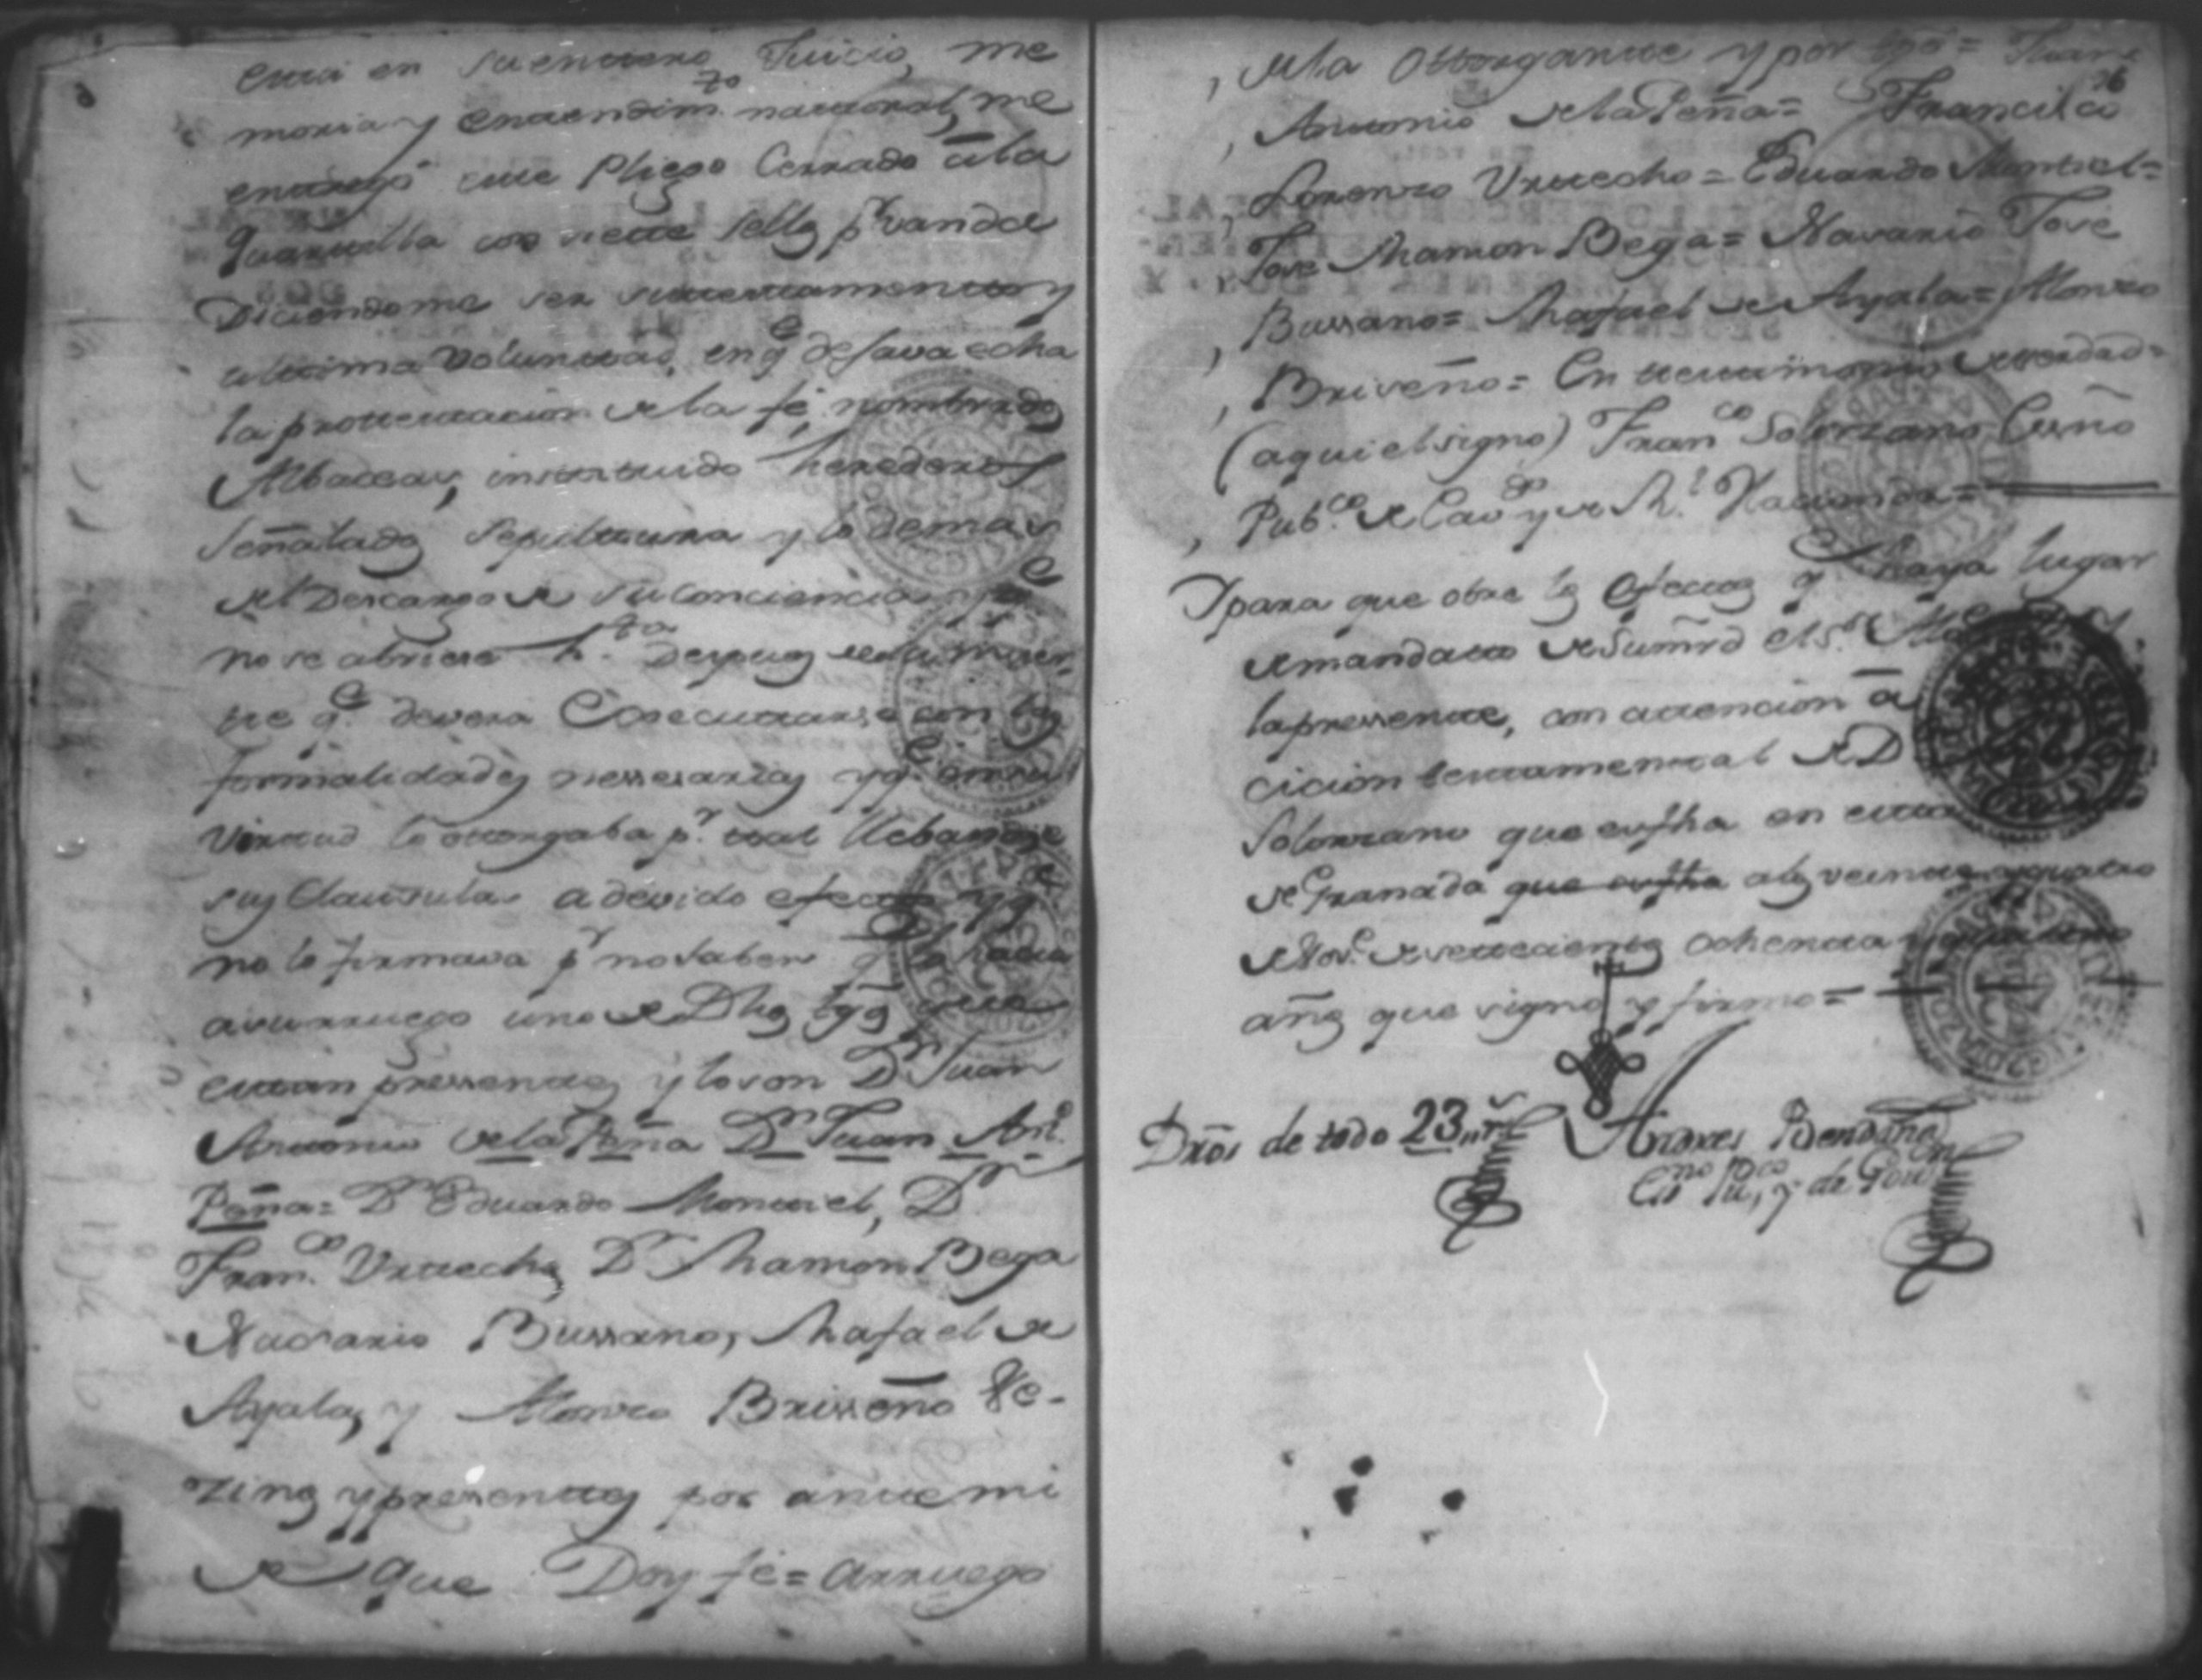 esta en su entero Juicio, me
moria y entendim.to natural, me
entregó este Pliego Cerrado â la
quartilla con siete sellos p.r vanda
Diciendome ser su testamento y
ultima voluntad, en q.e dejava echa
la protestacion de la fé, nombrados
Albaceas, instituido herederos
señalado sepultura y lo demas
del Descargo de su conciencia y q.e
no se abriese h.ta despues de su muer
te q.e devera Executarse con las
formalidades nessesarias y q.e en su
virtud lo otorgaba p.r tal llebandose
sus Clausulas a devido efecto y q.e
no lo firmava p.r no saber q.e lo hacia
a su rruego uno de Dhos tgos que
estan pressentes y lo son D.n Juan
Antonio de la Peña D.n Juan Ant.o
Peña = D.n Eduardo Montiel, D.n
Fran.co Urtecho, D.n Ramon Bega
Nasario Bussano, Rafael de
Ayala, y Alonzo Brisseño Ve-
zinos y pressentes por ante mi
de que Doy fé = a rruego
de la Otorgante y por tgo = Juan
26
Antonio de la Peña = Francisco
Lorenzo Urtecho = Eduardo Montiel =
Jose Ramon Bega = Navario Jose
Bussano = Rafael de Ayala = Alonzo
Briveño = En testimonio de verdad =
(aqui el signo) Fran.co Solorzano Essño
Pub.co de Cav.do y de R.l Hacienda =
Y para que obre los efectos q.e haya lugar
de mandato de su mrd el S.or
la pressente, con atencion â
cicion testamental de D
Solorzano que es fha en esta
de Granada que es fha a los veinte y quatro
de Nov.e de setecientos ochenta y
años que signo y firmo =
Dros de todo 23 rr.s
Andres Bendaña
Es.no Pu.co, y de Gov.on